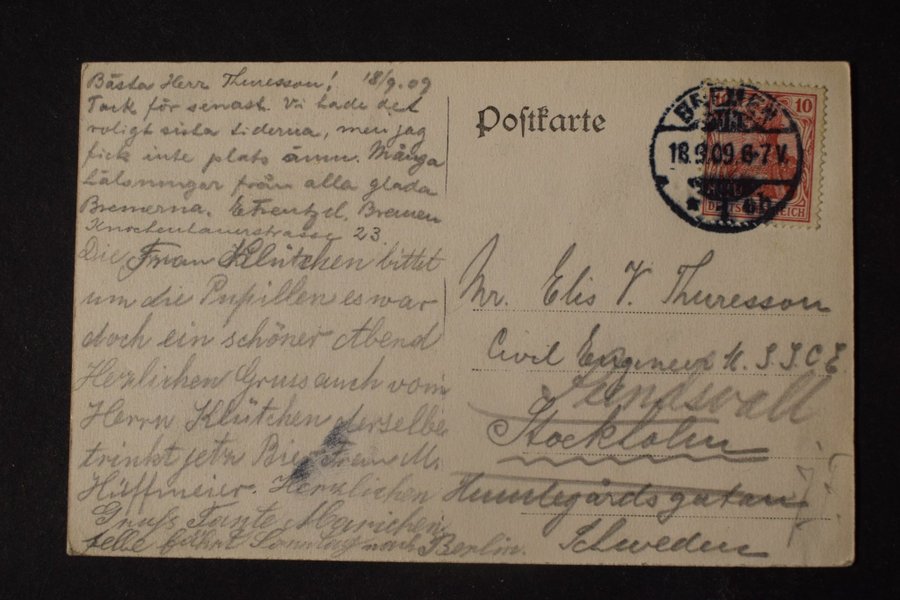 Bästa Herr Thuresson! 18/9.09
Tack för senast. Vi hade det
roligt sista tiderna, men jag
fick inte plats ännu. Många
hälsningar från alla glada
Bremerna. E Frentzel, Bremen
Knochenhauerstrasse 23
Die Frau Klütchen bittet
um die Pupillen es war
doch ein schöner Abend
Herzlichen Gruss auch vom
Herrn Klütchen derselbe
trinkt jetz Bier M.
Hüffmeier. Herzlichen
Gruß Tante Mariechen
selbe fährt Sonntag nach Berlin.
Postkarte
BREMEN
18.9.09 6-7 V.
10
DEUTSCHES REICH
Mr. Elis V. Thuresson
Civil Engineer
Sundsvall
Stockholm
Humlegårdsgatan
Schweden